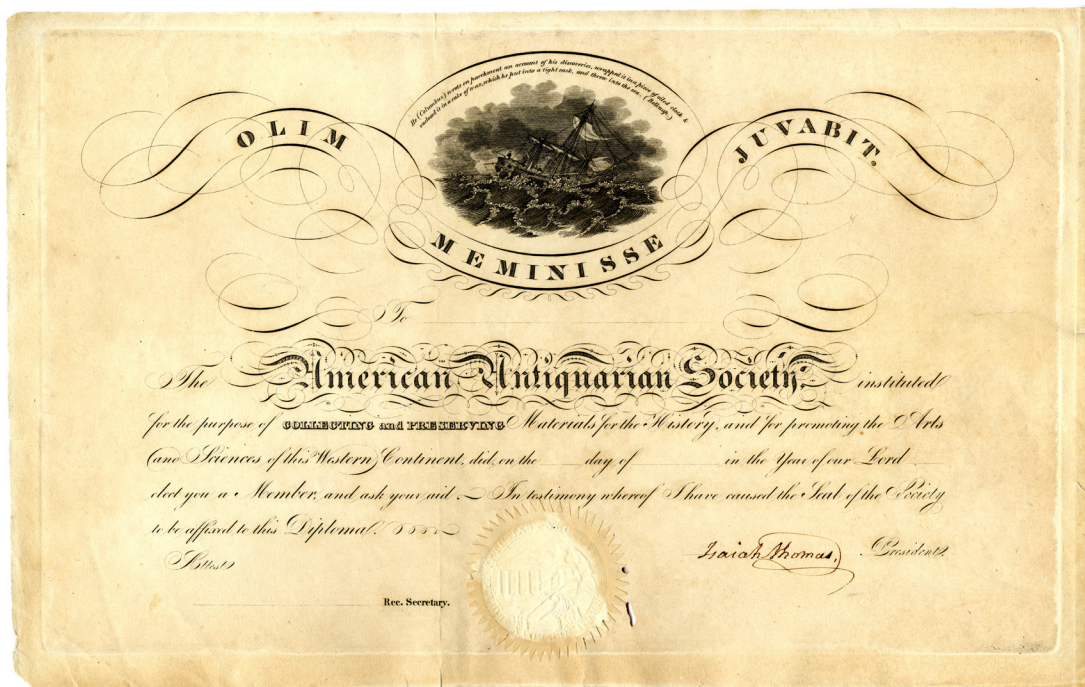 He (Columbus) wrote on parchment an account of his discoveries, wrapped it in a piece of oiled cloth &
enclosed it in a cake of wax, which he put into a tight cask, and threw into the sea. (Belknap.)
OLIM
MEMINISSE
JUVABIT.
To
The American Antiquarian Society, instituted
for the purpose of COLLECTING and PRESERVING Materials for the History, and for promoting the Arts
and Sciences of this Western Continent, did, on the day of in the Year of our Lord
elect you a Member, and ask your aid. In testimony whereof I have caused the Seal of the Society
to be affixed to this Diploma.
Isaiah Thomas, President.
Attest
Rec. Secretary.